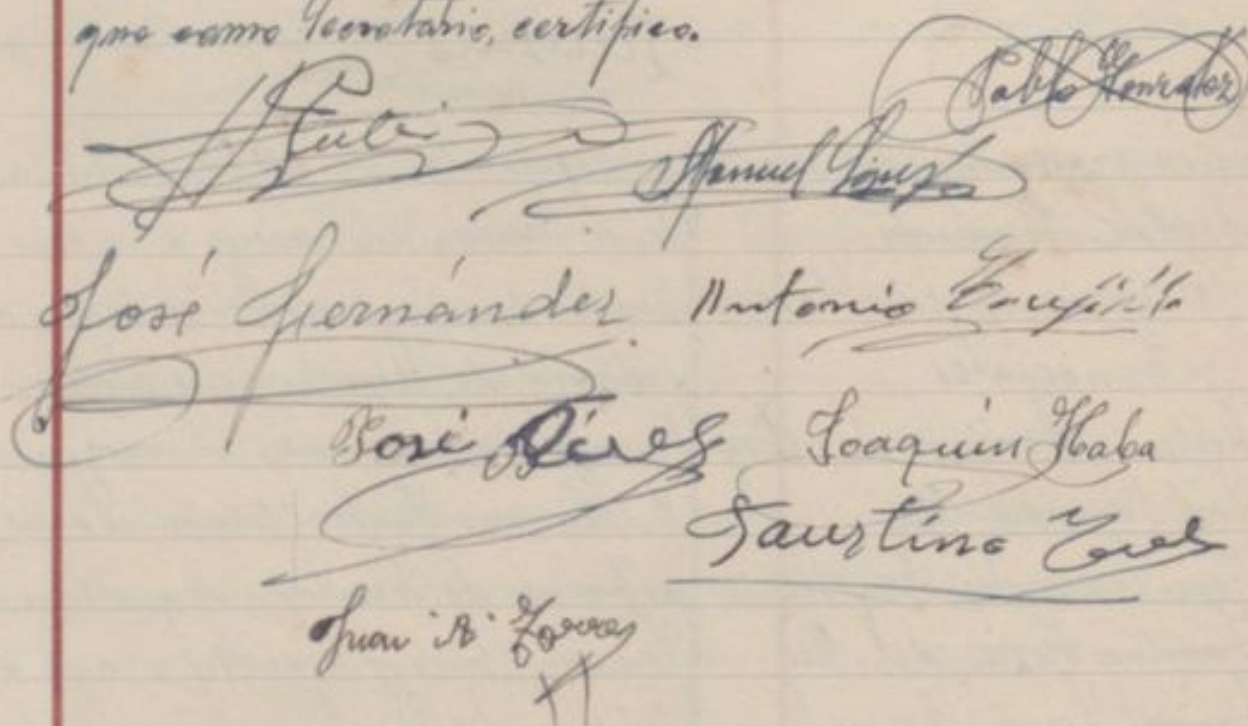 que como Secretario, certifico.
Pablo Gonzalez
Manuel López
José Hernández
Antonio
José Pérez
Joaquín Haba
Faustino
Juan A. Torres